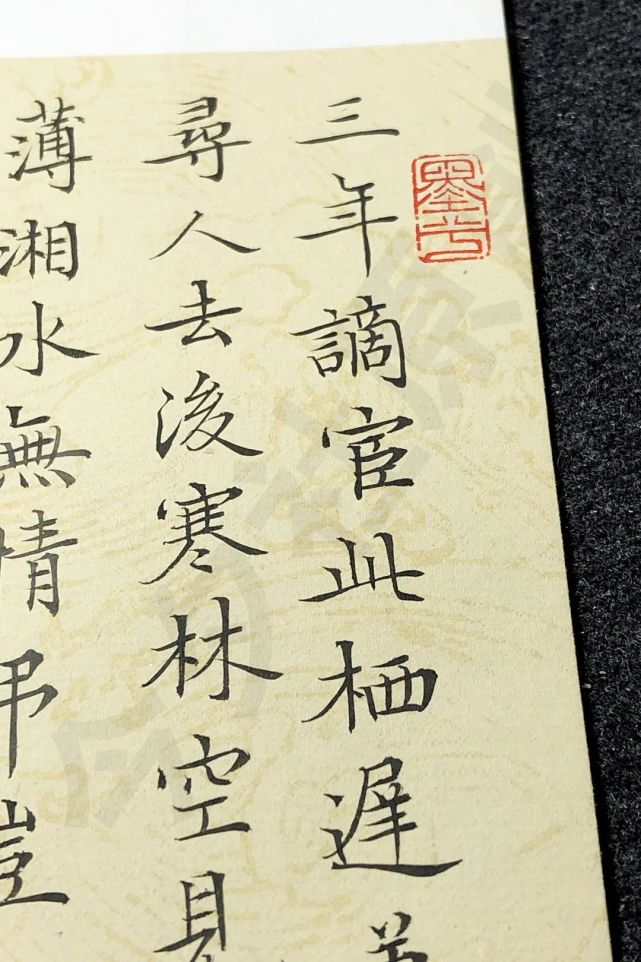 三年謫宦此栖遲
尋人去後寒林空見
薄湘水無情吊豈